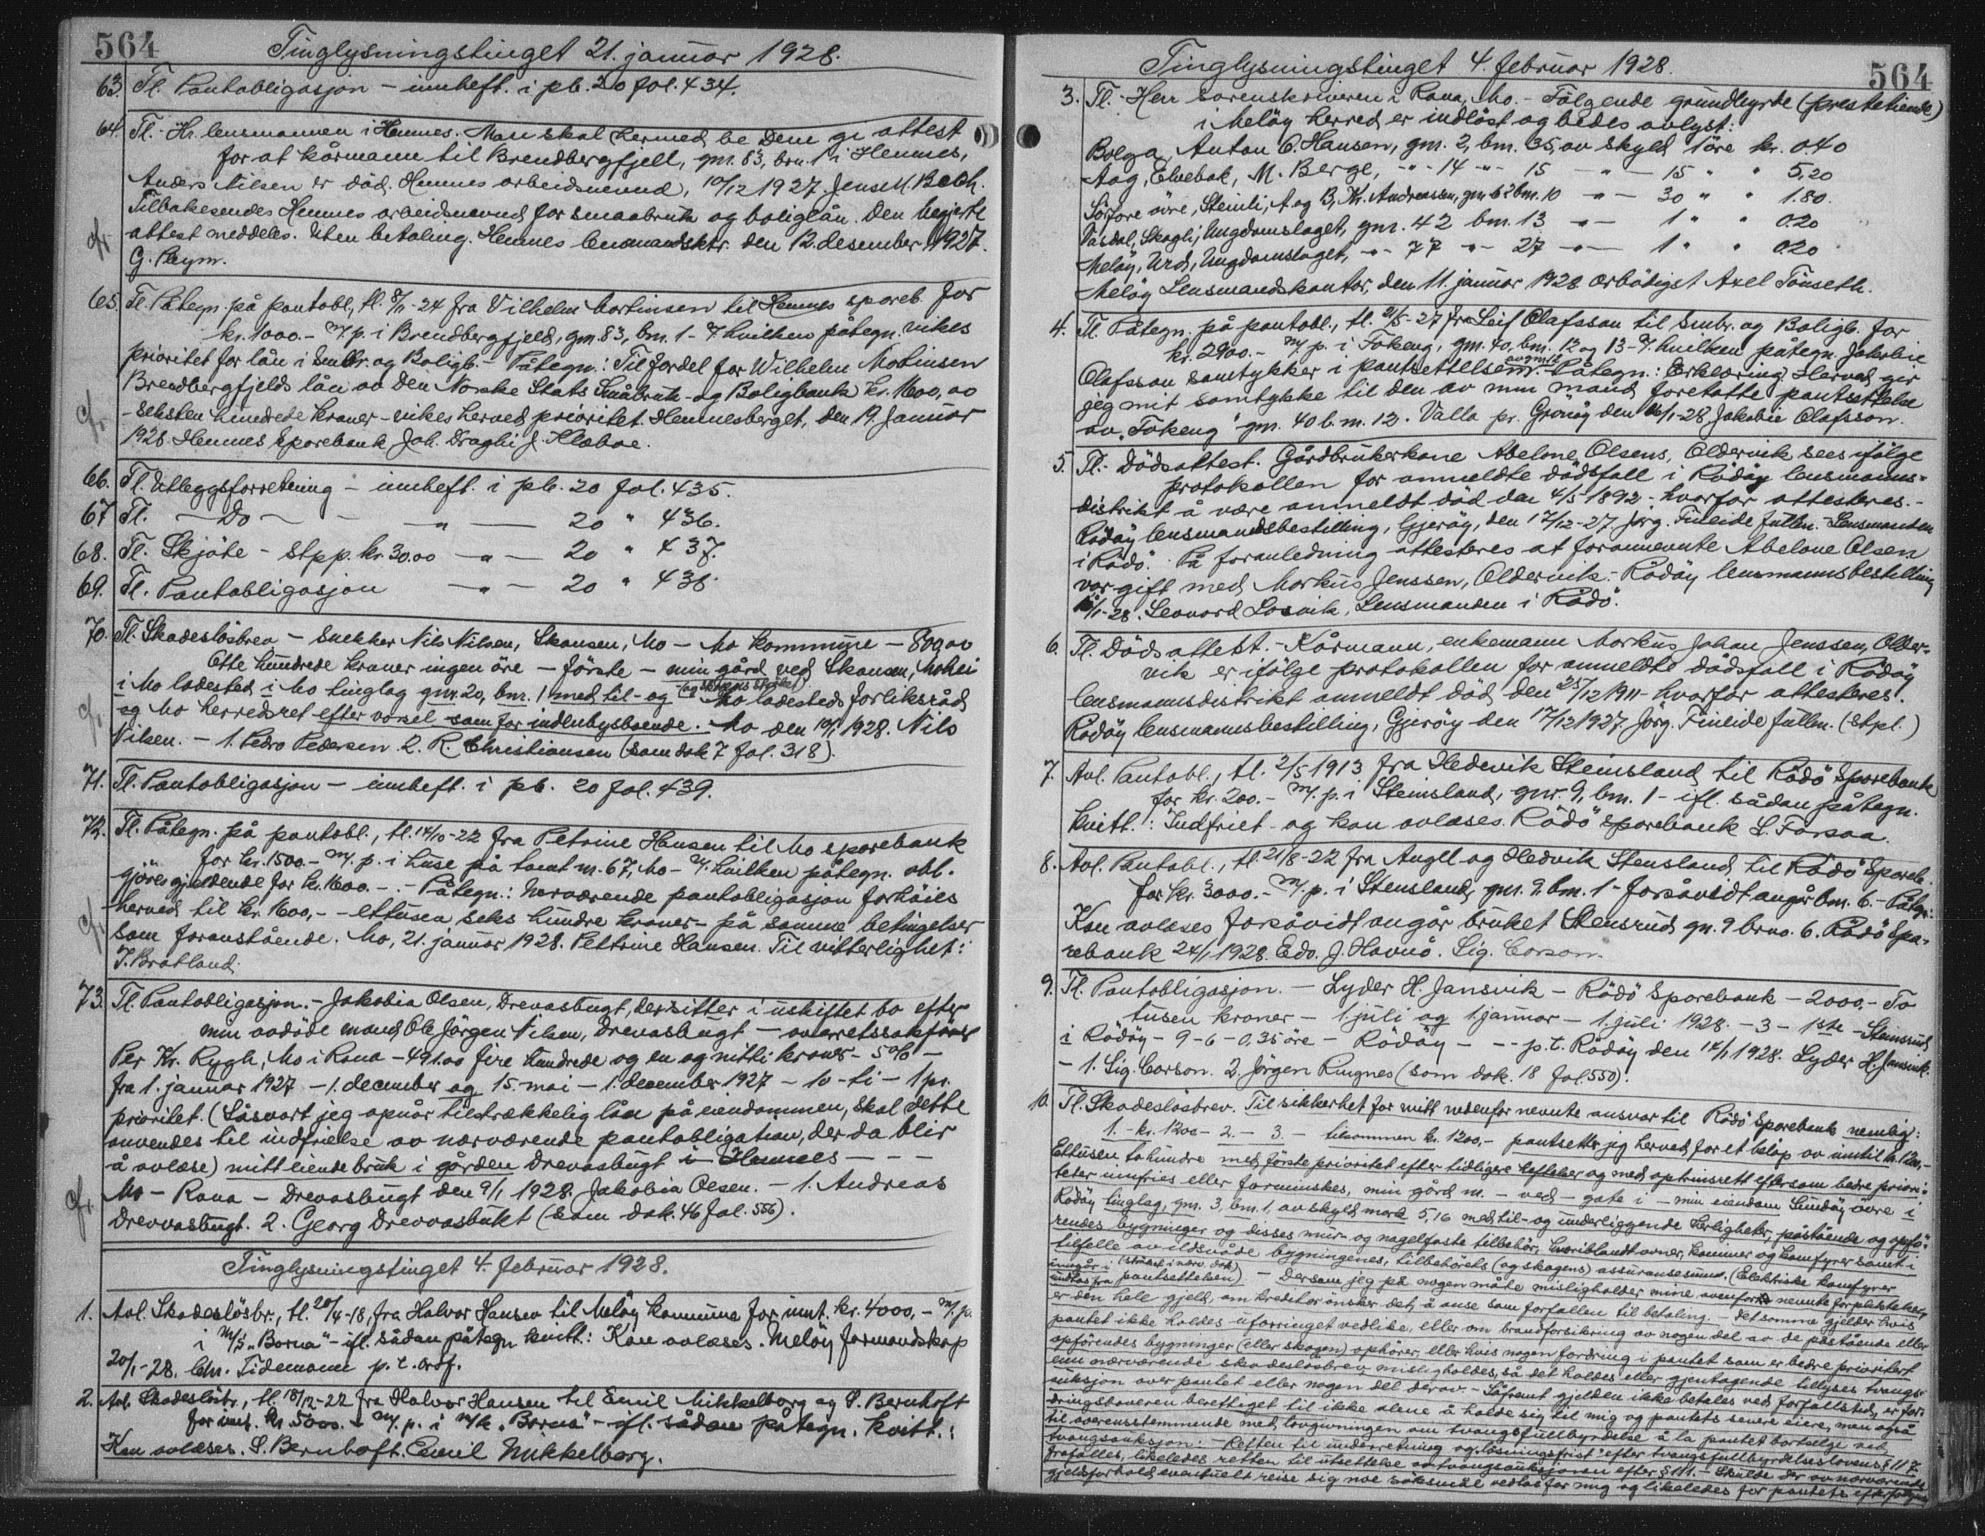 564
Tinglysningstinget 21. januar 1928.
63. Tl. Pantobligasjon – innheft. i pb. 20 fol. 434.
64. Tl. Hr. lensmannen i Hemnes. Man skal hermed be Dem gi attest
for at kårmann til Brendbergfjell, gnr. 83, brn. 1 i Hemnes,
Anders Nilsen er död. Hemnes arbeidsnevnd, 10/12 1927. Jens M. Bech.
Tilbakesendes Hemnes arbeidsnevnd for smaabruk og boliglån. Den begjærte
attest meddeles. Uten betaling. Hemnes lensmandsktr. den 12. desember 1927.
65. Tl. Påtegn. på pantobl., tl. fra Vilhelm Martinsen til Hemnes spareb. for
kr. 1000.– m/p. i Brendbergfjeld, gnr. 83, bnr. 1 – hvilken påtegn. vikes
prioritet for lån i Smbr. og Boligb. – Påtegn.: Til fordel for Wilhelm Martinsen
Brendbergfjelds lån av Den Norske Stats Småbruk- og Boligbank kr. 1600,00
– seksten hundrede kroner – vikes herved prioritet. Hemnesberget, den 19. Januar
1928. Hemnes Sparebank Joh. J. Klæboe.
66. Tl. Utleggsforretning – innheft. i pb. 20 fol. 435.
67 Tl. – Do – – " – 20 " 436.
68. Tl. Skjöte – Stpp. kr. 30.00 – " – 20 " 437.
69. Tl. Pantobligasjon – " – 20 " 438.
70. Tl. Skadeslösbrev – Snekker Nils Nilsen, Skansen, Mo – Mo kommune – 800,00
Otte hundrede kroner ingen öre – förste – min gård ved Skansen, Mohei
i Mo ladested i Mo tinglag gnr. 20, bnr. 1 med til- og Mo ladesteds forliksråd
og Mo herredsret efter varsel som for indenbysboende. Mo den 10/1 1928. Nils
Nilsen. – 1. Pedro Pedersen 2. R. Christiansen (som dok 7 fol. 318).
71. Tl. Pantobligasjon – innheft. i pb. 20 fol. 439.
72. Tl. Påtegn. på pantobl., tl. 14/10-22 fra Petrine Hansen til Mo sparebank
for kr. 1500.– m/p. i huse på tomt nr. 67, Mo – hvilken påtegn. obl.
gjöres gjeldende for kr. 1600.–. – Påtegn.: Nærværende pantobligasjon forhöies
herved til kr. 1600,– – ettusen seks hundre kroner – på samme betingelser
som foranstående. Mo, 21. januar 1928. Petrine Hansen. Til vitterlighet:
T. Bratland.
73. Tl. Pantobligasjon. – Jakobia Olsen, Drevasbugt, der sitter i uskiftet bo efter
min avdöde mand Ole Jörgen Nilsen, Drevasbugt – overretssakförer
Per Kr. Rygh, Mo i Rana – 491.00 fire hundrede og en og nitti kroner – 5 % –
fra 1. januar 1927 – 1. december og 15. mai – 1. december 1927 – 10 – ti – 1 pr.
prioritet. (Såsnart jeg opnår tilstrækkelig lån på eiendommen, skal dette
anvendes til indfrielse av nærværende pantobligation, der da blir
å avlæse) mitt eiende bruk i gården Drevasbugt i Hemnes – – –
Mo – Rana – Drevasbugt den 9/1 1928. Jakobia Olsen. – 1. Andreas
Drevvasbugt. 2. Georg Drevvasbukt (som dok. 46 fol. 556).
Tinglysningstinget 4. februar 1928.
1. Avl. Skadeslösbr., tl. 20/4-18, fra Halvor Hansen til Melöy kommune for innt. kr. 4000,– m/p.
i m/s „Borna" – ifl. sådan påtegn. kvitt.: Kan avlæses. Melöy formandskap
20/1-28. Chr. Tidemann p.t. ordf.
2. Avl. Skadeslösbr., tl. 18/12-22 fra Halvor Hansen til Emil Mikkelborg og S. Bernhoft
for kr. 5000.– m/p. i m/k „Borna" – ifl. sådan påtegn. kvitt.:
Kan avlæses. S. Bernhoft. Emil Mikkelborg.
Tinglysningstinget 4. februar 1928.
564
3. Tl. Herr sorenskriveren i Rana, Mo. – Fölgende grundbyrde (prestetiende)
i Melöy herred er indlöst og bedes avlyst:
Bolga, Anton C. Hansen, gnr. 2, bnr. 35, av skyld 1 öre kr. 0.40
Aag, Elvebak, M. Berge, – " – 14 – " – 15 – " – 15 " " 5,20
Sörfore övre, Steinli, A. og B. Kr. Andreassen, gnr. 62 bnr. 10 – " – 30 " " 1.80
Vasdal, Skogli, Ungdomslaget, gnr. 42 bnr. 13 – " – 1 " " 0.20
Melöy, Urd, Ungdomslaget, – " – 77 – " – 27 – " – 1 " " 0.20
Melöy Lensmandskontor, den 11. januar 1928 ærbödigst Axel Tönseth.
4. Tl. Påtegn. på pantobl., tl. fra Leif Olafsson til Smbr. og Boligb. for
kr. 2900.– m/p. i Tokeng, gnr. 40, bnr. 12 og 13 – hvilken påtegn. Jakobie
Olafsson samtykker i pantsettelsen. – Påtegn.: Erklæring: Herved gir
jeg mit samtykke til den av min mand foretatte pantsettelse
av „Tokeng" gnr. 40 b.nr. 12. Valla pr. Gjeröy den 16/1-28. Jakobie Olafsson.
5. Tl. Dödsattest. Gårdbrukerkone Abelone Olsens, Oldervik sees ifölge
protokollen for anmeldte dödsfall i Rödöy lensmanns-
distrikt å være anmeldt död den 4/5 1892 – hvorfor attesteres. –
Rödöy lensmandsbestilling, Gjeröy, den 17/12-27. Jörg. Fineide fullm. Lensmanden
i Rödö. På foranledning attesteres at forannevnte Abelone Olsen
var gift med Markus Jenssen, Oldervik. – Rödöy lensmannsbestilling
Leonard Losvik, Lensmanden i Rödö.
6. Tl. Dödsattest. – Kårmann, enkemann Markus Johan Jenssen, Older-
vik er ifölge protokollen for anmeldte dödsfall i Rödöy
lensmannsdistrikt anmeldt död den 25/12 1911 – hvorfor attesteres.
Rödöy lensmannsbestilling, Gjeröy den 17/12 1927. Jörg. Fineide fullm. (Stpl.)
7. Avl. Pantobl., tl. 2/5 1913 fra Hedevik Steinsland til Rödö Sparebank
for kr. 200.– m/p. i Steinsland, gnr. 9, bnr. 1 – ifl. sådan påtegn.
kvitt.: Indfriet og kan avlæses. Rödö sparebank L. Forsaa.
8. Avl. Pantobl., tl. 21/8-22 fra Angell og Hedvik Stensland til Rödö Spareb.
for kr. 3000.– m/p. i Stensland, gnr. 9, bnr. 1 – forsåvidt angår bnr. 6. – Påtegn.:
Kan avlæses forsåvidt angår bruket Stensrud gn. 9 brno. 6. Rödö Spa-
rebank 24/1 1928. Edv. J. Havnö. Sig. Corson.
9. Tl. Pantobligasjon. – Lyder H. Jansvik – Rödö Sparebank – 2000.– To
tusen kroner – 1. juli og 1. januar – 1. juli 1928. – 3 – 1ste – Steinsrud
i Rödöy – 9 – 6 – 0,35 öre – Rödöy – – – p.t. Rödöy den 14/1 1928. Lyder H. Jansvik.
– 1. Sig. Corson. 2. Jörgen Ringnes (som dok. 18 fol. 550).
10. Tl. Skadeslösbrev. Til sikkerhet for mitt nedenfor nevnte ansvar til Rödö Sparebank nemlig:
1. – kr. 1200 – 2. – 3. – tilsammen kr. 1200,– pantsetter jeg herved for et belöp av inntil kr. 1200,–
Ettusen tohundre med förste prioritet efter tidligere heftelser og med optrinsrett eftersom bedre priori-
teter innfries eller forminskes, min gård nr. – ved – gate i – min eiendom Sundöy övre i
Rödöy tinglag, gnr. 3, bnr. 1, av skyld mark 5,16 med til- og underliggende herligheter, påstående og opfö-
rendes bygninger og disses mur- og nagelfaste tilbehör, hvoriblandt ovner, kammer og komfyrer samt i
tilfelle av ildsvåde bygningenes, tilbehörets (og skogens) assuransesum. (Elektriske komfyrer
pantsettelsen). – Dersom jeg på nogen måte misligholder mine ovenfor nevnte forpliktelser
er den hele gjeld, om kreditor önsker det, å anse som forfallen til betaling. – Det samme gjelder hvis
pantet ikke holdes uforringet vedlike, eller om brandforsikring av nogen del av de påstående eller
opförendes bygninger (eller skogen) ophörer, eller hvis nogen fordring i pantet som er bedre prioritert
enn nærværende skadeslösbrev, misligholdes, så det holdes eller gjentagende tillyses tvangs-
auksjon over pantet eller nogen del derav. – Såfremt gjelden ikke betales ved forfallstid, er for-
dringshaveren berettiget til ikke alene å holde sig til mig og pantets senere eiere, men også
til overensstemmende med lovgivningen om tvangsfullbyrdelse å la pantet bortselge ved
tvangsauksjon. – Retten til underretning og lösningsfrist efter tvangsfullbyrdelseslovens § 117
frafalles, likeledes retten til utsettelse av tvangsauksjonen efter § 111. – Skulde der av nærværende
gjeldsforhold eventuelt reise sig noe söksmål vedtas for mig og likeledes for pantets